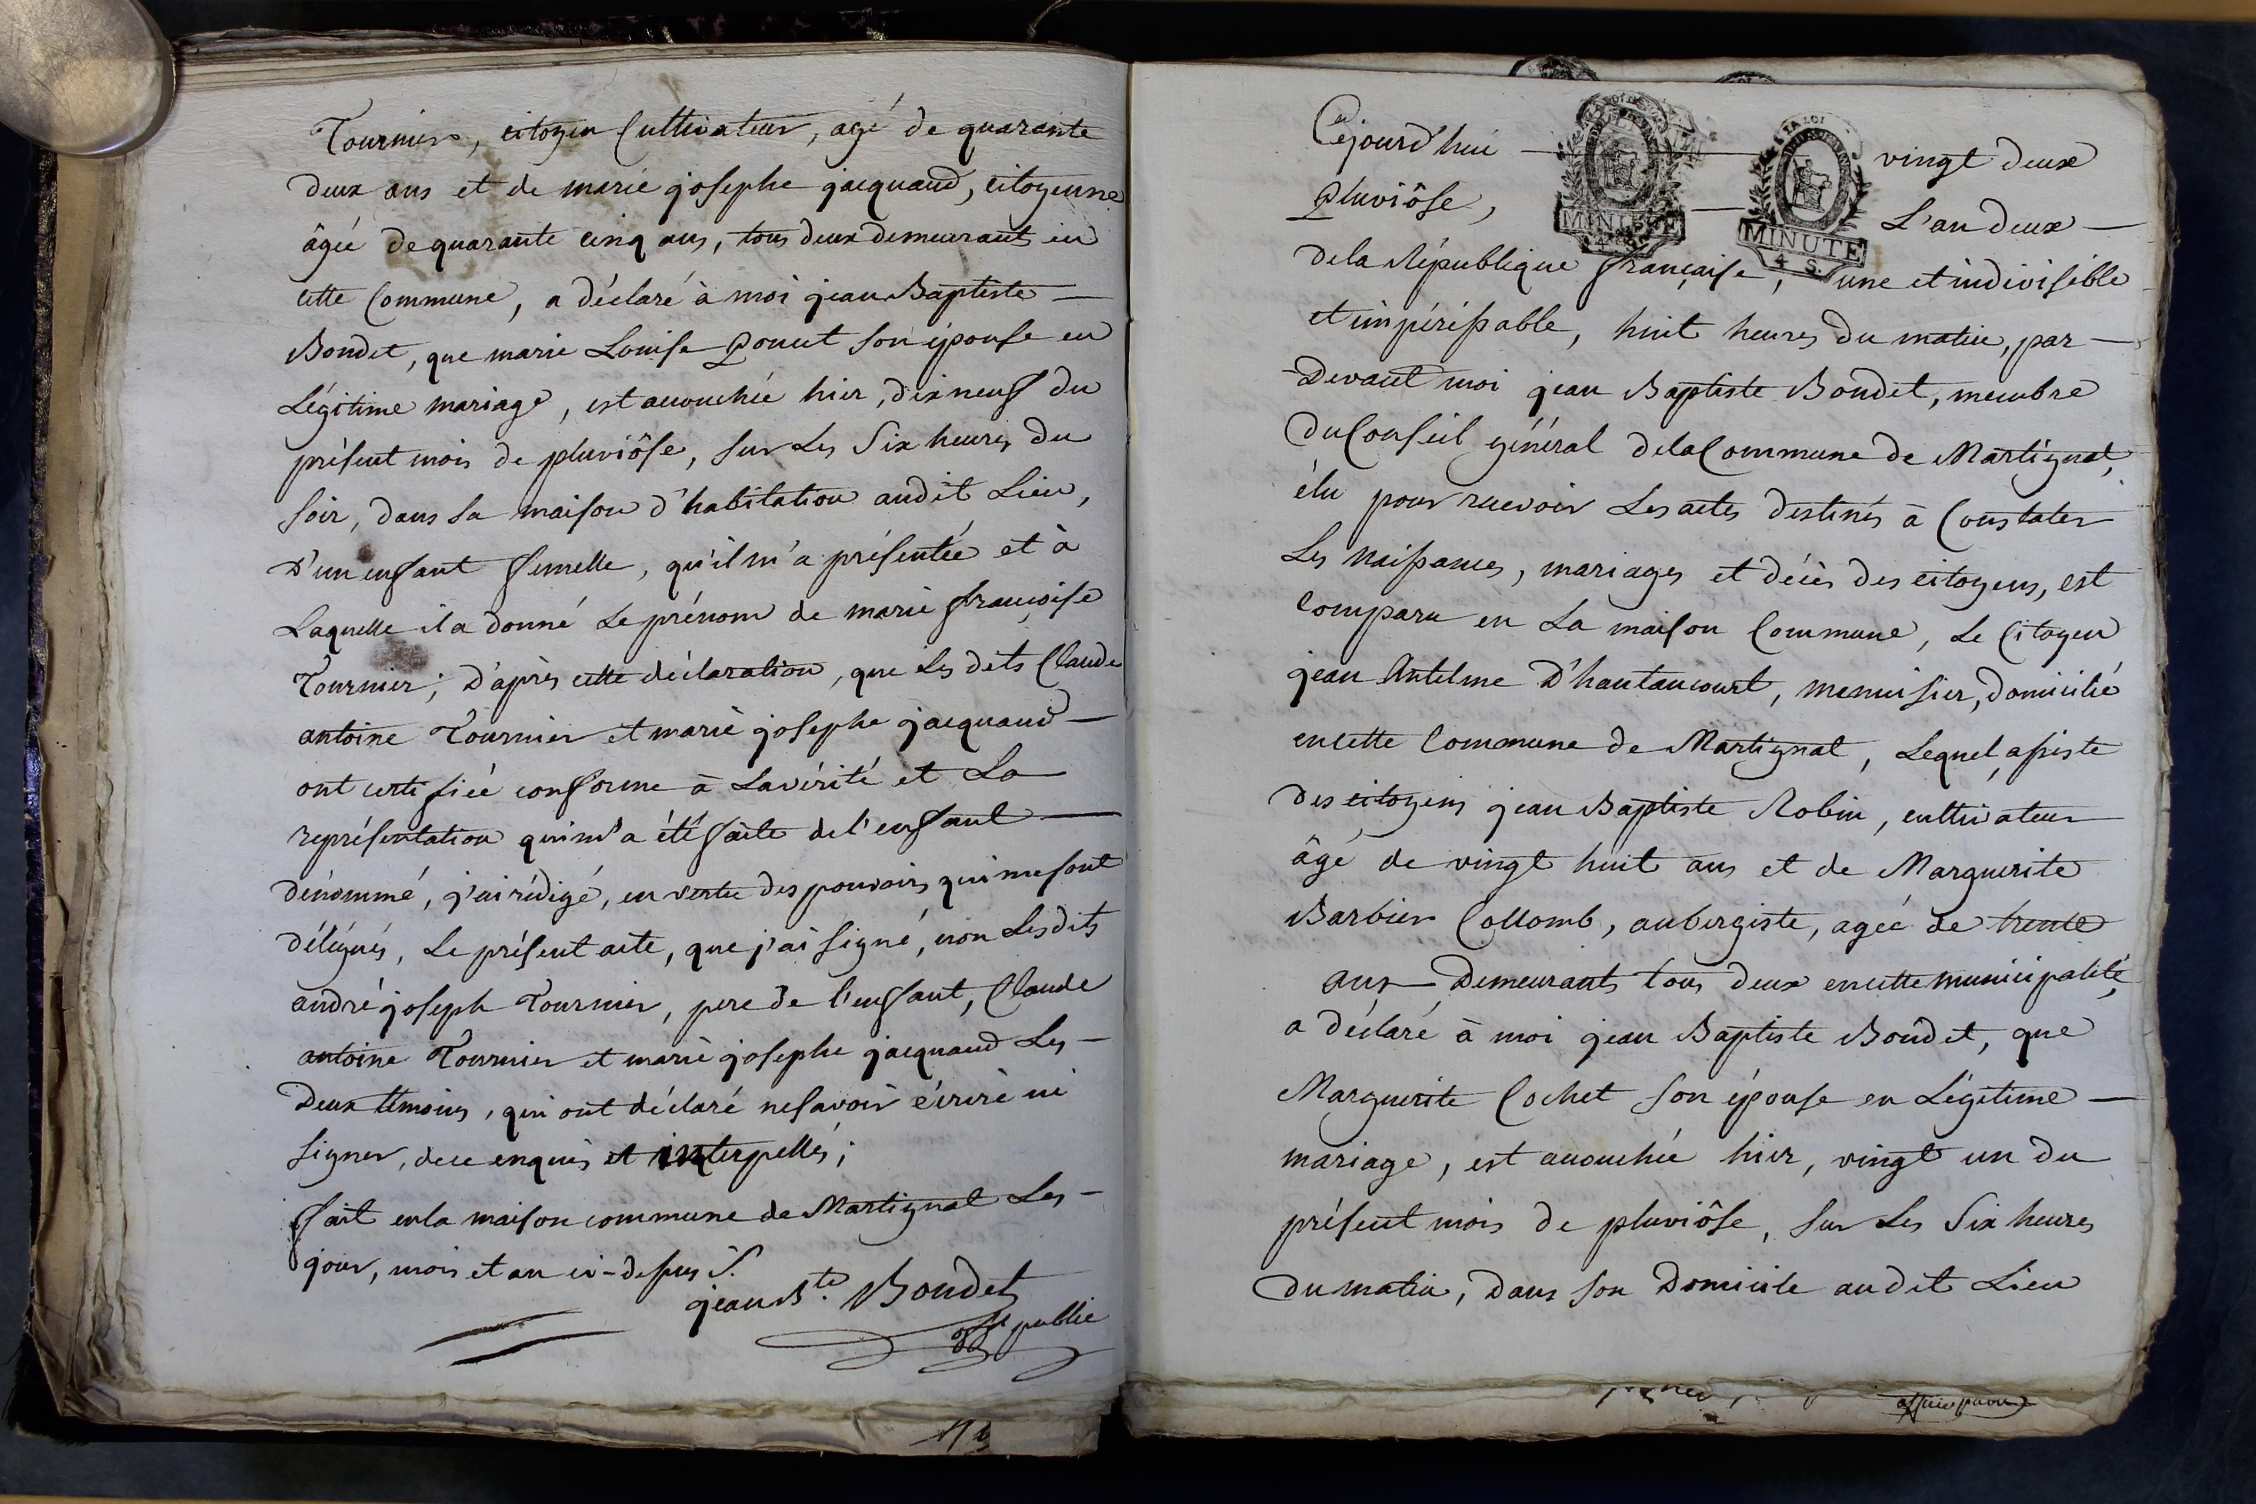 Tournier, citoyen Cultivateur, agé de quarante
deux ans et de marie josephe jacquand, citoyenne
âgée de quarante cinq ans, tous deux demeurants en
cette Commune, a déclaré à moi jean Baptiste —
Bondet, que marie Louise Poncet son épouse en
Légitime mariage, est accouchée hier, dix neuf du
présent mois de pluviôse, sur Les Six heures du
soir, dans sa maison d'habitation audit Lieu,
d'un enfant femelle, qu'il m'a présentée et à
Laquelle il a donné Le prénom de marie françoise
Tournier; d'après cette déclaration, que Les dits Claude
antoine Tournier et marie josephe jacquand —
ont certifiée conforme à La vérité et La
représentation qui m'a été faite de l'enfant —
dénommé, j'ai rédigé, en vertu des pouvoirs qui me sont
délégués, Le présent acte, que j'ai signé, non Lesdits
andré joseph Tournier, pere de l'enfant, Claude
antoine Tournier et marie josephe jacquand Les —
Deux témoins, qui ont déclaré ne savoir écrire ni
signer, de ce enquis et interpellés;
fait en la maison commune de Martignat Les —
jour, mois et an ci-dessus ./.
jean Bte. Bondet
off. public
Cejourd'hui — vingt deux
Pluviôse, — L'an deux —
LA LOI
MINUTE
LA LOI
MINUTE
4 S.
de la République française, une et indivisible
et impérissable, huit heures du matin, par —
-Devant moi jean Baptiste Bondet, membre
du Conseil général de la Commune de Martignat,
élu pour recevoir Les actes destinés à Constater
Les Naissances, mariages et décès des citoyens, est
comparu en La maison Commune, Le Citoyen
jean Antelme D'hautancourt, menuisier, domicilié
en cette Commune de Martignat, Lequel, assisté
des citoyens jean Baptiste Robin, cultivateur
âgé de vingt huit ans et de Marguerite
Barbier Collomb, aubergiste, agée de trente
ans — Demeurants tous deux en cette municipalité,
a déclaré à moi jean Baptiste Bondet, que
Marguerite Cochet son épouse en Légitime —
mariage, est accouchée hier, vingt un du
présent mois de pluviôse, sur Les Six heures
du matin, dans son Domicile audit Lieu